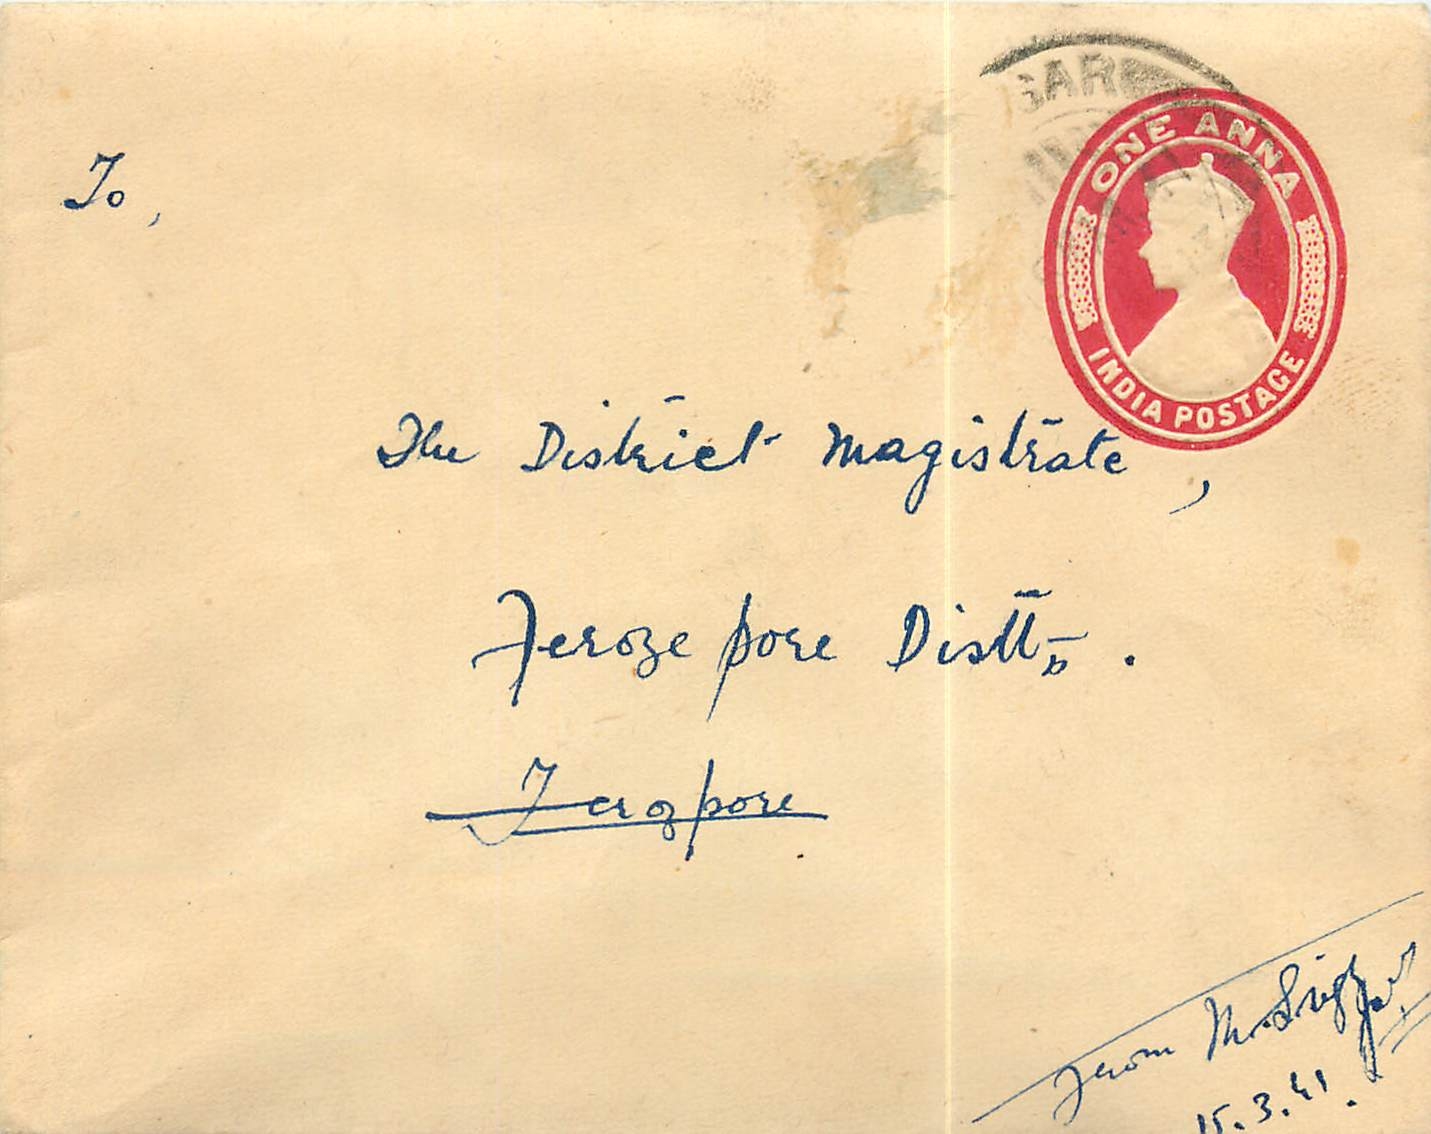 To,
ONE ANNA
INDIA POSTAGE
The District Magistrate,
Feroze pore Distt.
Ferozpore
From M. Singh
15.3.41.